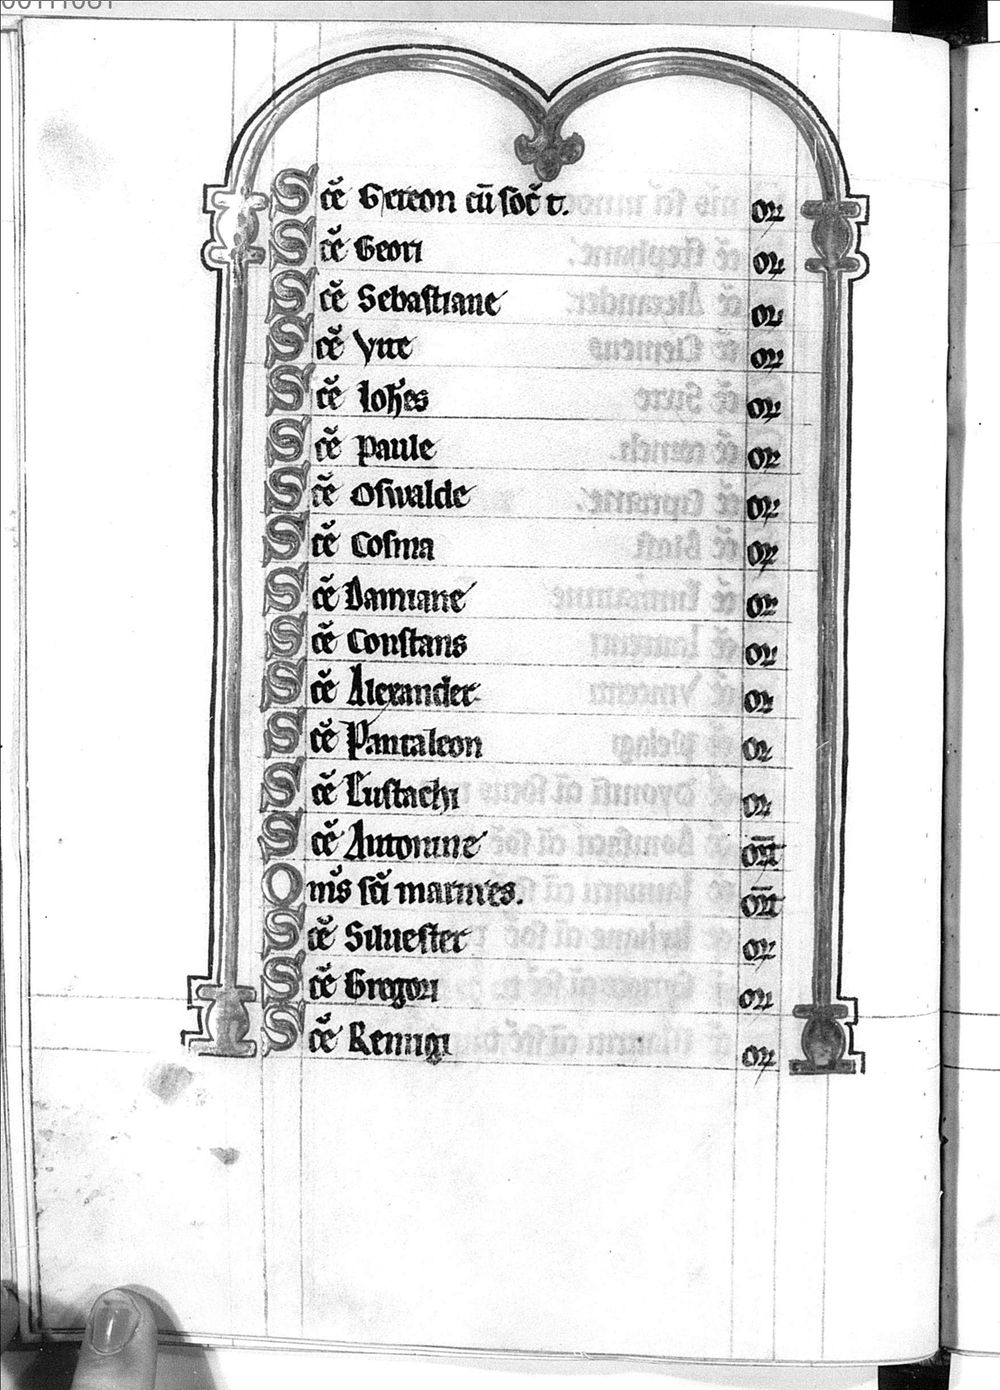 00111081
Scē Gereon cū soč t. or
Scē Geori or
Scē Sebastiane or
Scē Vite or
Scē Ioh̄es or
Scē Paule or
Scē Oswalde or
Scē Cosma or
Scē Damiane or
Scē Constans or
Scē Alexander or
Scē Pantaleon or
Scē Eustachi or
Scē Antonine or
Om̄s sc̄i martires. or̄t
Scē Siluester or
Scē Gregori or
Scē Remigi or